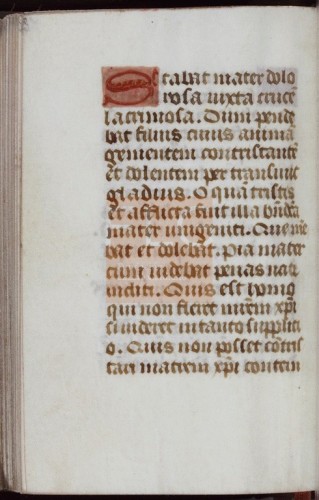 Stabat mater dolo
rosa iuxta crucē
lacrimosa. Dum pende
bat filius cuius animā
gementem contristantē
et dolentem per transiuit
gladius. O quā tristis
et afflicta fuit illa bn̄dcā
mater unigeniti. Que me
bat et dolebat. Pia mater
cum uidebat penas nati
incliti. Quis est homo
qui non fleret mr̄em xp̄i
si uideret in tanto suppliti
o. Quis non posset cōtris
tari matrem xp̄i contem